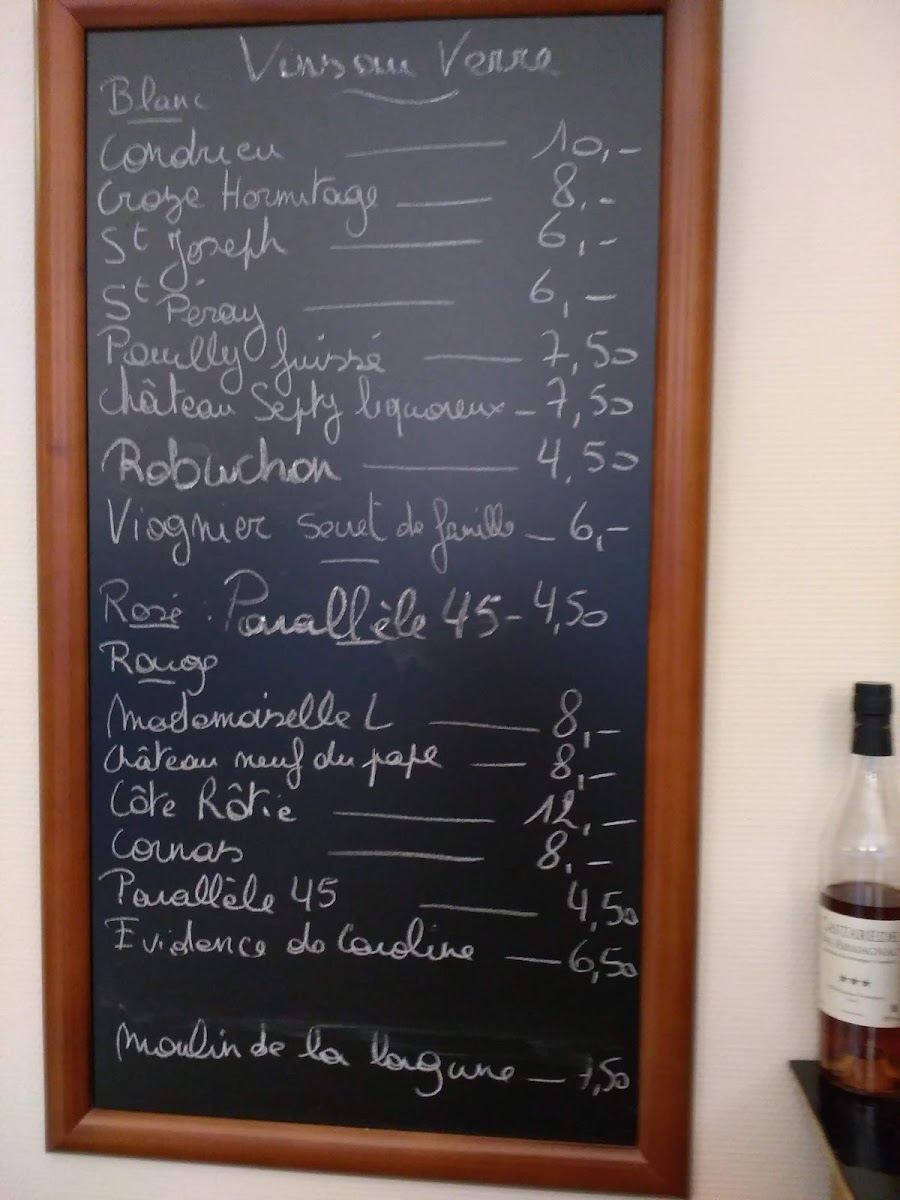 Vins au Verre
Blanc
Condrieu 10,-
Croze Hermitage 8,-
St Joseph 6,-
St Péray 6,-
Pouilly fuissé 7,50
Château Septy liquoreux - 7,50
Robuchon 4,50
Viognier secret de famille - 6,-
Rosé : Parallèle 45 - 4,50
Rouge
Mademoiselle L 8,-
Château neuf du pape 8,-
Côte Rôtie 12,-
Cornas 8,-
Parallèle 45 4,50
Evidence de Caroline 6,50
Moulin de la lagune - 7,50